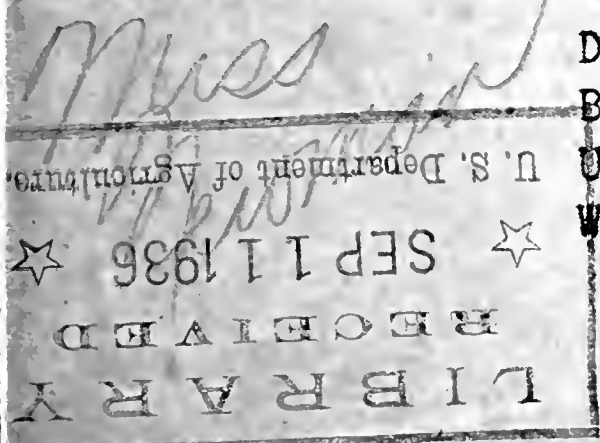 Miss
LIBRARY
RECEIVED
☆ SEP 11 1936 ☆
U. S. Department of Agriculture.
D
B
U
W